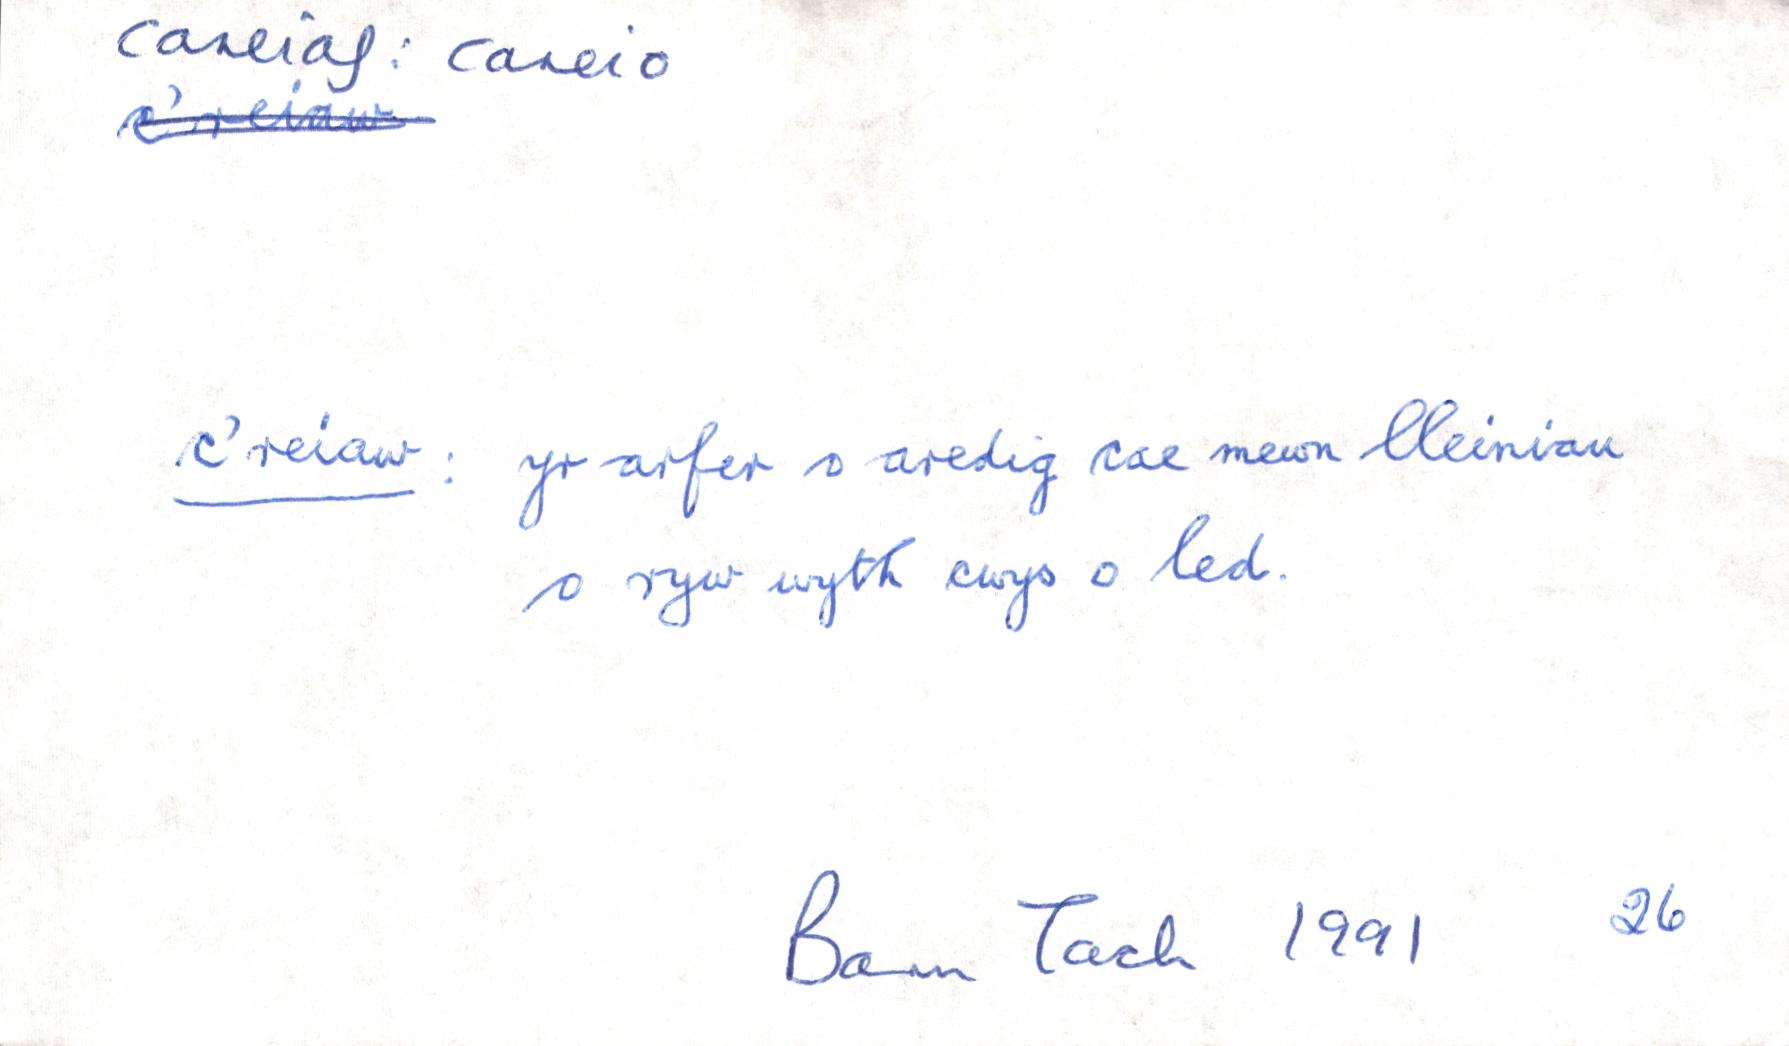 careiaf: careio
c'reiaw
c'reiaw: yr arfer o aredig cae mewn lleiniau
o ryw wyth cwys o led.
Barn Tach 1991 26